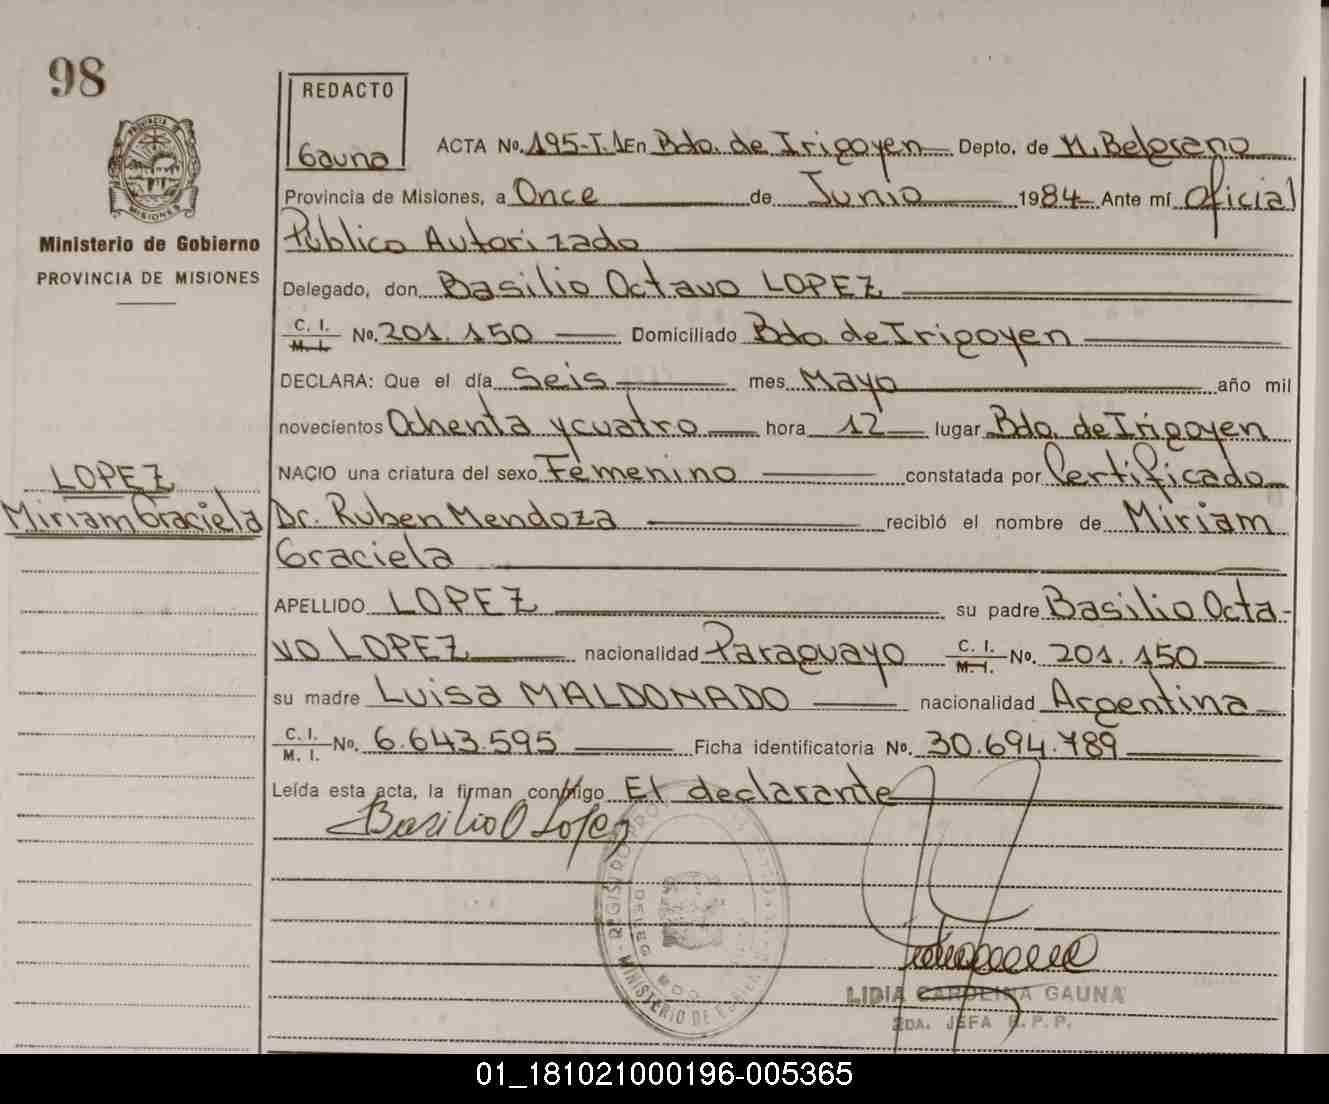 98
REDACTO
Gauna
PROVINCIA DE
MISIONES
Ministerio de Gobierno
PROVINCIA DE MISIONES
ACTA No. 195-T.1 En Bdo. de Irigoyen Depto. de M. Belgrano
Provincia de Misiones, a Once de Junio 1984 Ante mí Oficial
Público Autorizado
Delegado, don Basilio Octavo LOPEZ
C. I. M. I. No. 201.150 Domiciliado Bdo. de Irigoyen
DECLARA: Que el día Seis mes Mayo año mil
novecientos Ochenta y cuatro hora 12 lugar Bdo. de Irigoyen
NACIO una criatura del sexo Femenino constatada por Certificado
Dr. Ruben Mendoza recibió el nombre de Miriam
Graciela
LOPEZ
Miriam Graciela
APELLIDO LOPEZ su padre Basilio Octa-
vo LOPEZ nacionalidad Paraguayo C. I. M. I. No. 201.150
su madre Luisa MALDONADO nacionalidad Argentina
C. I. M. I. No. 6.643.595 Ficha identificatoria No. 30.694.789
Leída esta acta, la firman conmigo El declarante
Basilio O Lopez
MINISTERIO DE
LIDIA CAROLINA GAUNA
2DA. JEFA R.P.P.
01_181021000196-005365